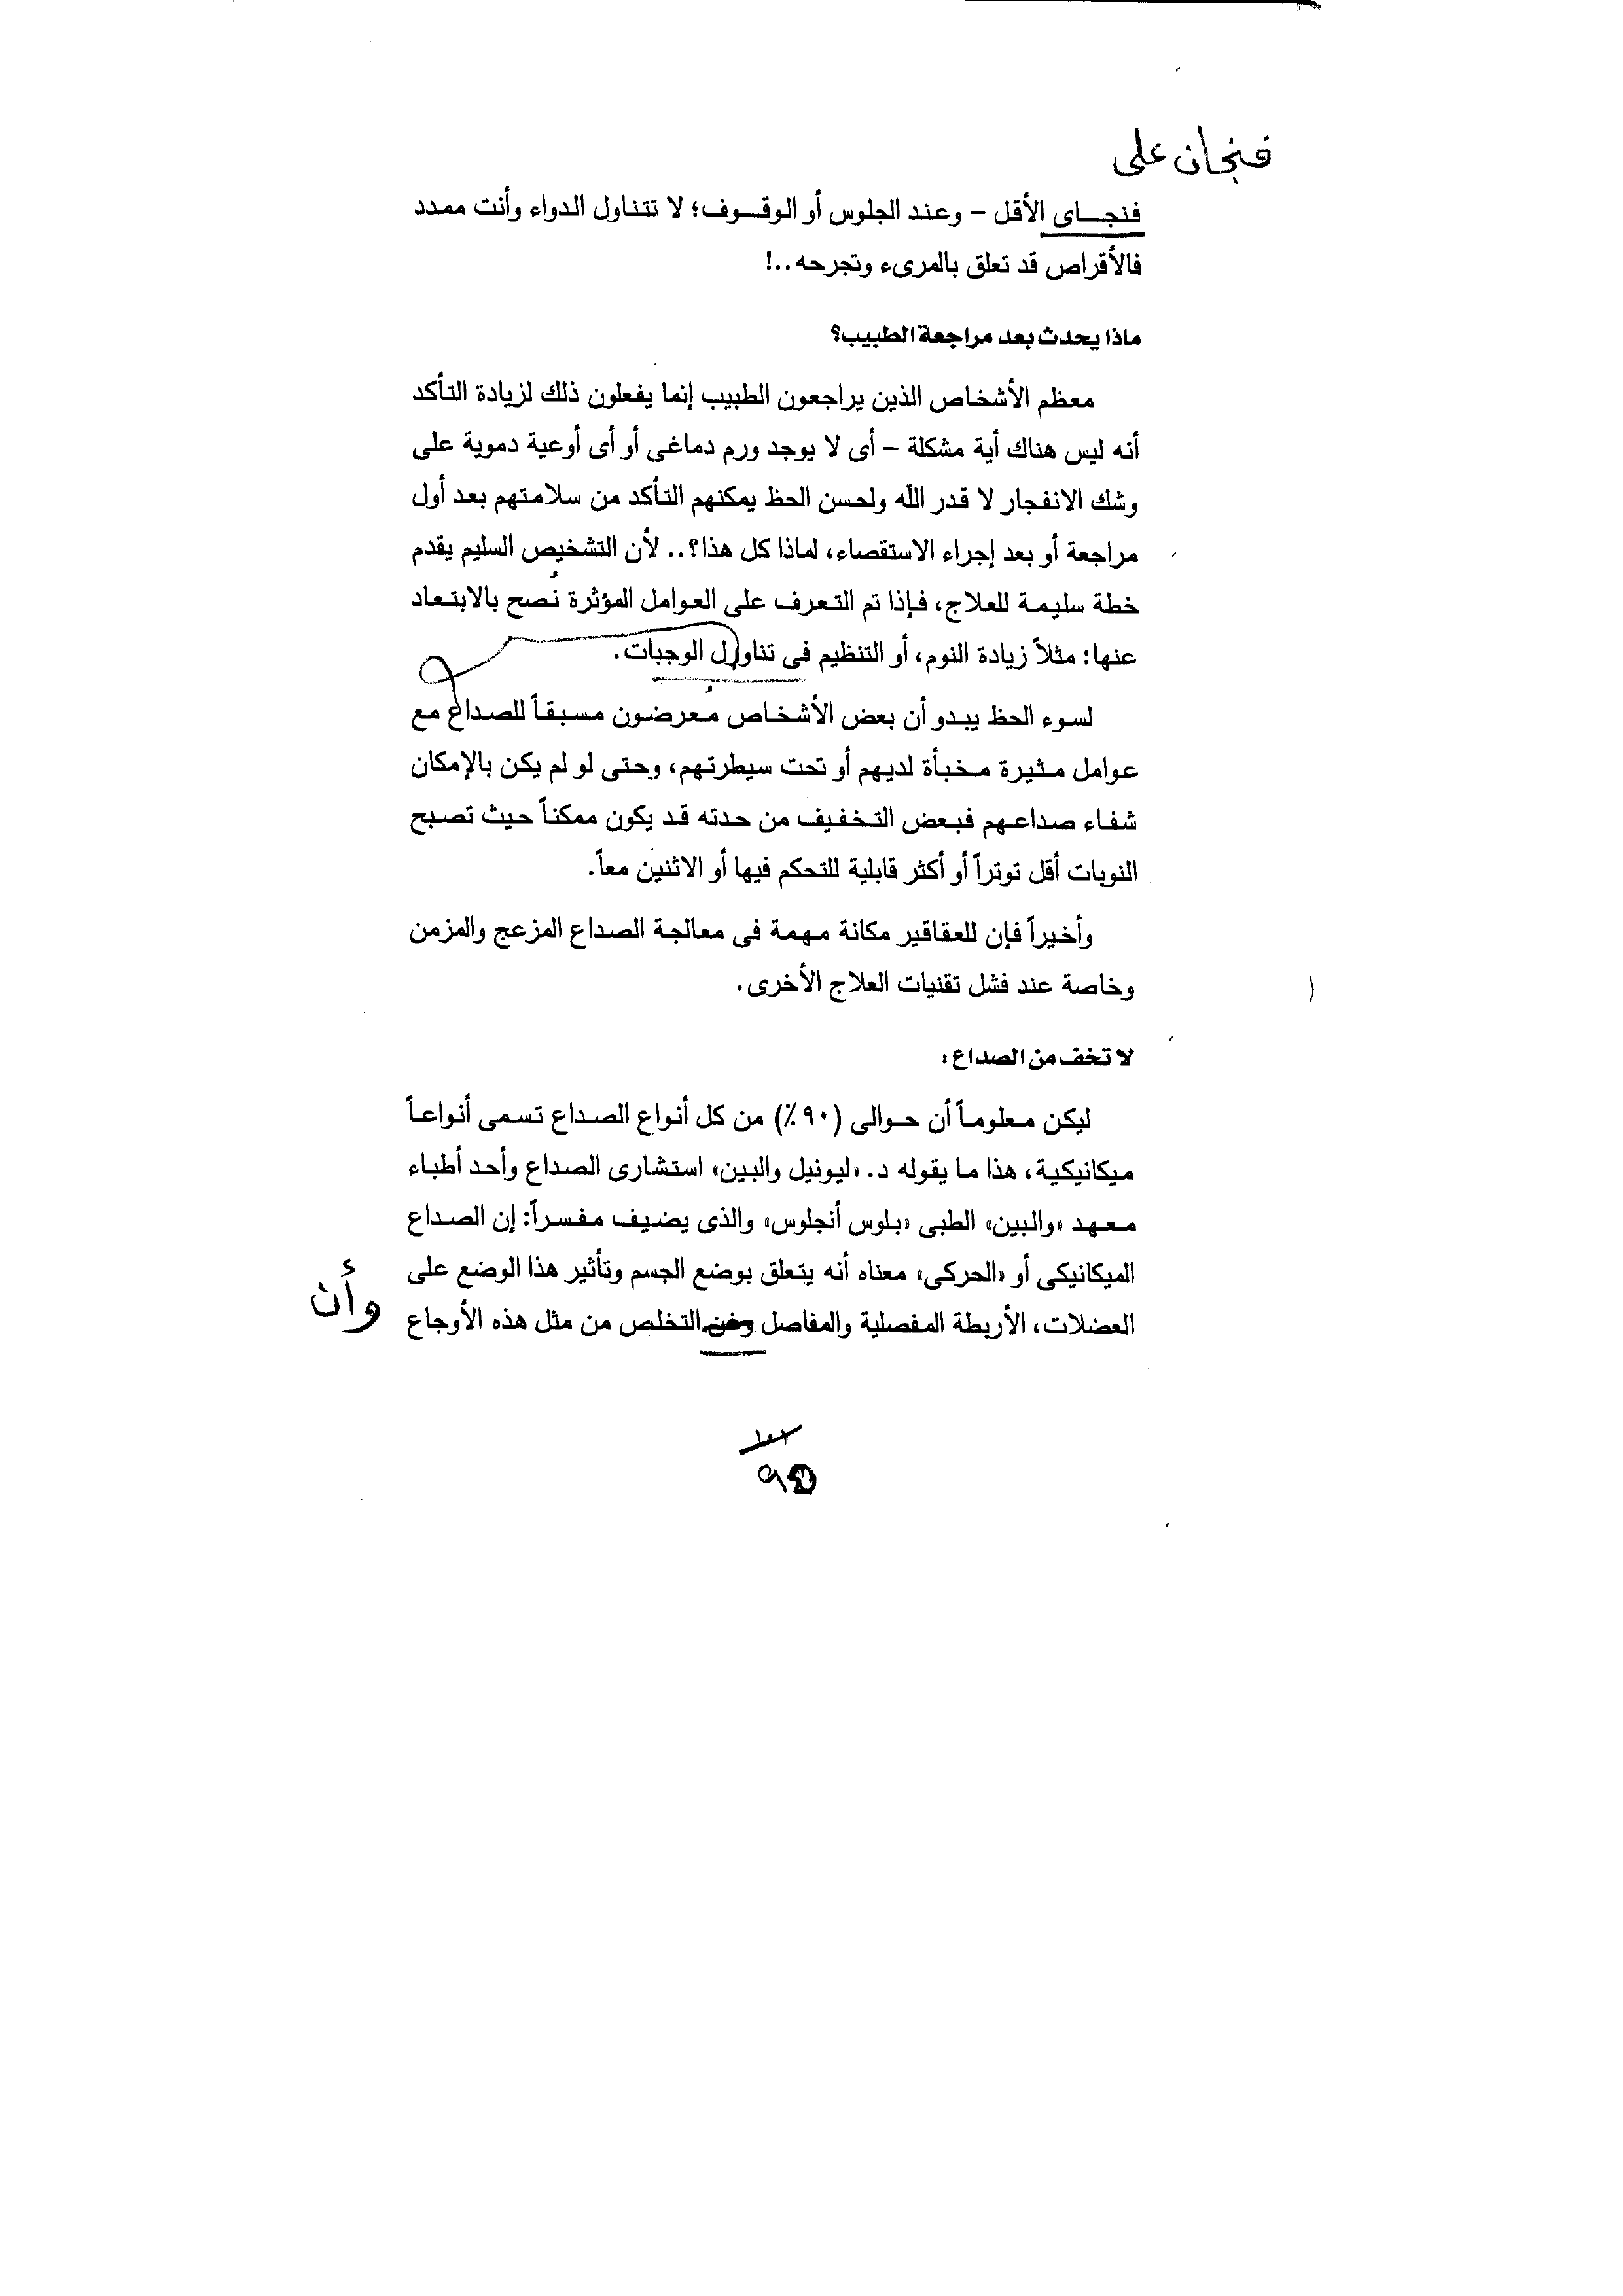 فنجان على
فنجاى الأقل – وعند الجلوس أو الوقوف؛ لا تتناول الدواء وأنت ممدد
فالأقراص قد تعلق بالمرىء وتجرحه..!
ماذا يحدث بعد مراجعة الطبيب؟
معظم الأشخاص الذين يراجعون الطبيب إنما يفعلون ذلك لزيادة التأكد
أنه ليس هناك أية مشكلة – أى لا يوجد ورم دماغى أو أى أوعية دموية على
وشك الانفجار لا قدر الله ولحسن الحظ يمكنهم التأكد من سلامتهم بعد أول
مراجعة أو بعد إجراء الاستقصاء، لماذا كل هذا؟.. لأن التشخيص السليم يقدم
خطة سليمة للعلاج، فإذا تم التعرف على العوامل المؤثرة نُصح بالابتعاد
عنها: مثلاً زيادة النوم، أو التنظيم فى تناول الوجبات.
لسوء الحظ يبدو أن بعض الأشخاص مُعرضون مسبقاً للصداع مع
عوامل مثيرة مخبأة لديهم أو تحت سيطرتهم، وحتى لو لم يكن بالإمكان
شفاء صداعهم فبعض التخفيف من حدته قد يكون ممكناً حيث تصبح
النوبات أقل توتراً أو أكثر قابلية للتحكم فيها أو الاثنين معاً.
وأخيراً فإن للعقاقير مكانة مهمة فى معالجة الصداع المزعج والمزمن
وخاصة عند فشل تقنيات العلاج الأخرى.
لا تخف من الصداع:
ليكن معلوماً أن حوالى (٩٠٪) من كل أنواع الصداع تسمى أنواعاً
ميكانيكية، هذا ما يقوله د. «ليونيل والبين» استشارى الصداع وأحد أطباء
معهد «والبين» الطبى «بلوس أنجلوس» والذى يضيف مفسراً: إن الصداع
الميكانيكى أو «الحركى» معناه أنه يتعلق بوضع الجسم وتأثير هذا الوضع على
وأن
العضلات، الأربطة المفصلية والمفاصل التخلص من مثل هذه الأوجاع